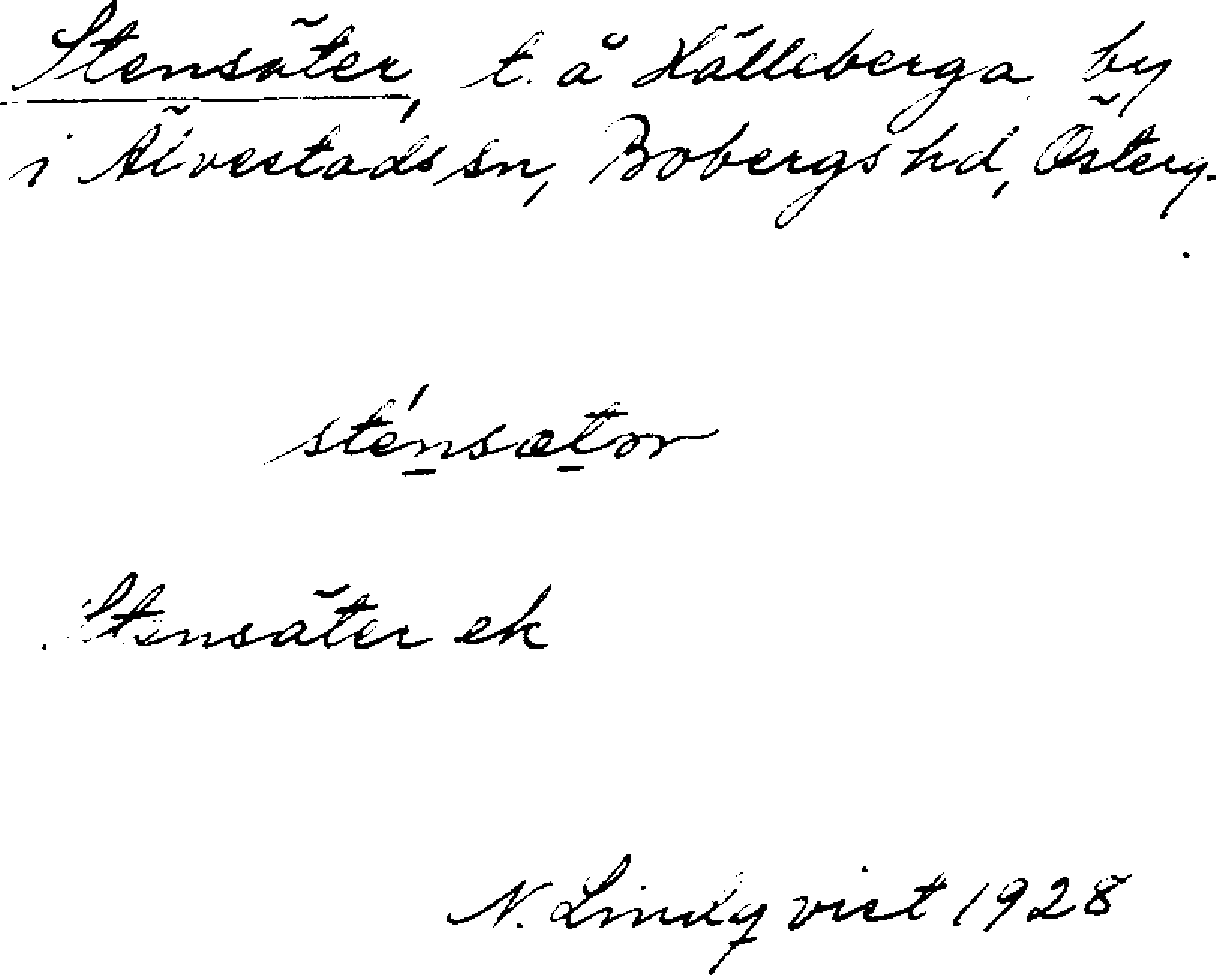 Stensäter, t. å Hälleberga by
i Älvestads sn, Bobergs hd, Österg.
sténsætər
Stensäter ek
N. Lindqvist 1928